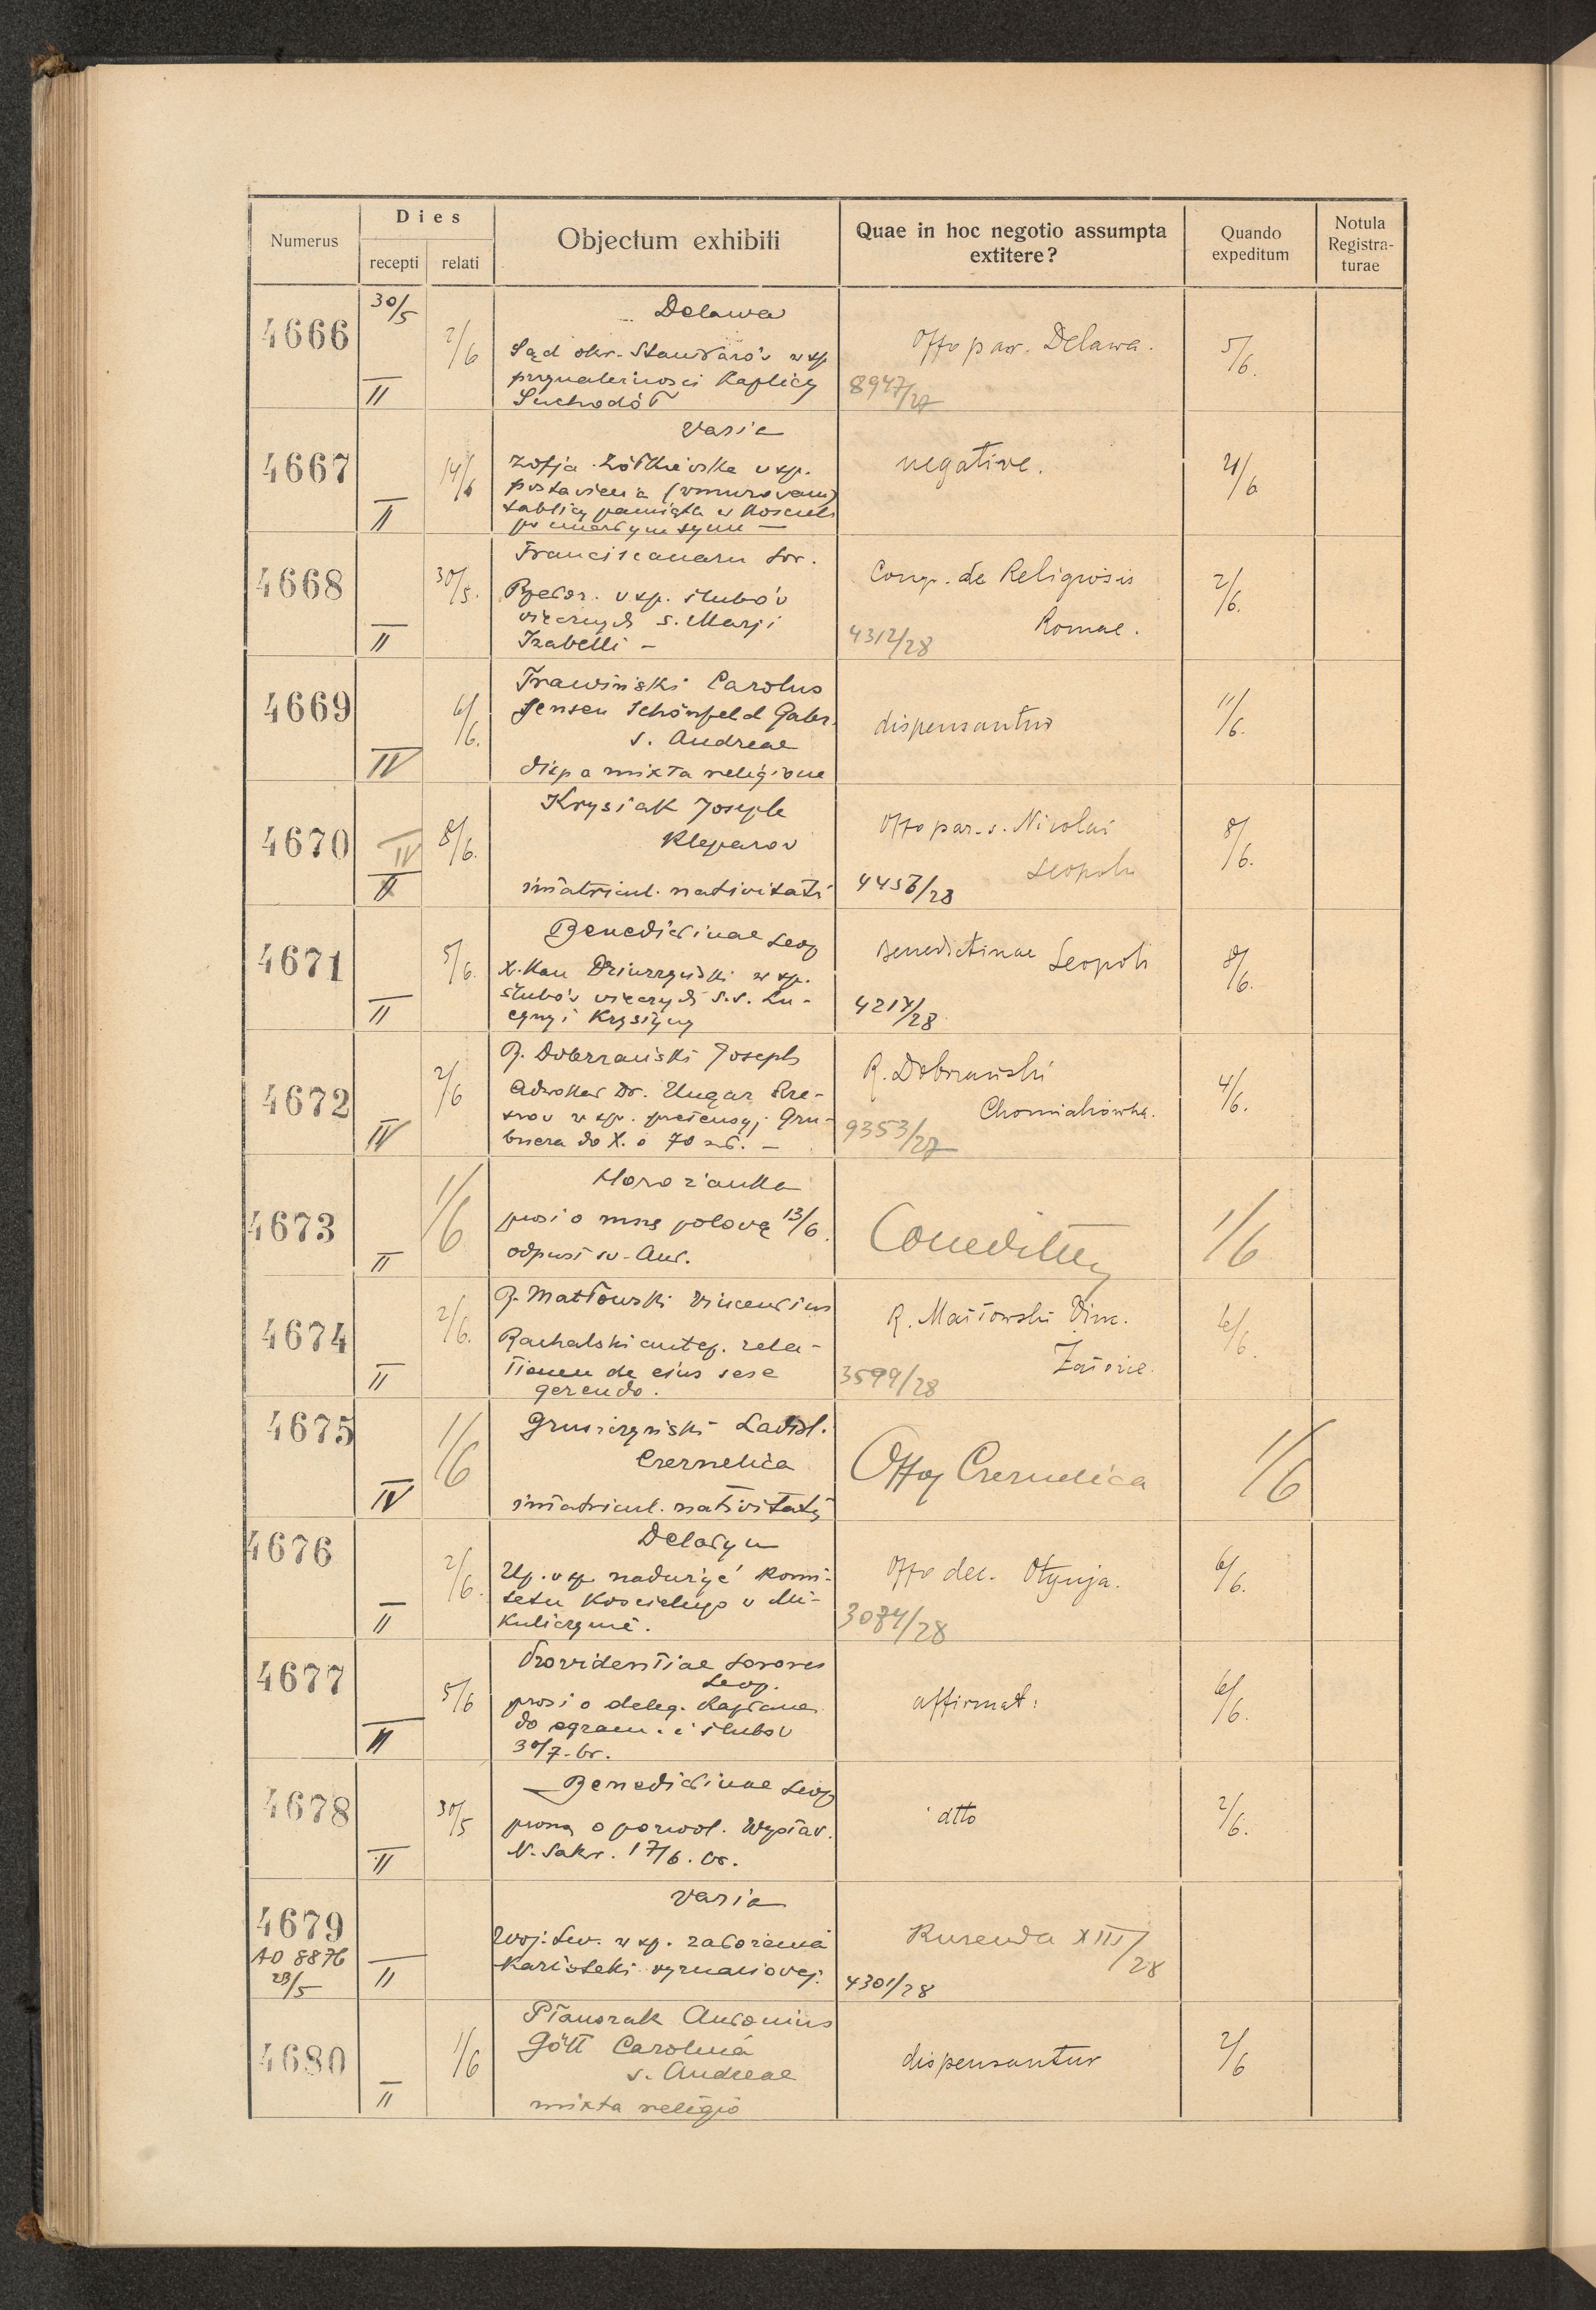 Numerus
Dies
recepti relati
Objectum exhibiti
Quae in hoc negotio assumpta
extitere?
Quando
expeditum
Notula
Registra-
turae
4666
30/5
II
2/6
Delawa
Sąd okr. Stanisławów w sp
przynależności Kaplicy
Suchodół
Offo par. Delawa.
8947/27
5/6.
4667
II
14/6
Varia
Zofja Żółkiewska w sp.
postawienia (wmurowania)
tablicy pamiątk w Kościele
po umarłym synu —
negative.
21/6
4668
II
30/5.
Franciscanarum Sor.
Rzetor. w sp. ślubów
wieczych S. Marji
Izabelli —
Congr. de Religiosis
Romae.
4312/28
2/6.
4669
IV
6/6.
Trawiński Carolus
Jensen Schönfeld Gabr.
s. Andreae
disp a mixta religione
dispensantur
11/6.
4670
IV
II
8/6.
Krysiak Joseph
Kleparov
imatricul. nativitati
Offo par. s. Nicolai
Leopoli
4456/28
8/6.
4671
II
5/6.
Benedictinae Leop
X. Kan Dziurzyński w sp.
ślubów wieczych S.S. Łu-
cyny i Krystyny
Benedictinae Leopoli
4217/28
8/6.
4672
IV
2/6
R. Dobrzański Joseph
Adwokat Dr. Ungar Rze-
szow w sp. pretensyj Gru-
bnera do X. o 70 zł. —
R. Dobrzański
Chomiakówka.
9353/27
4/6.
4673
II
1/6
Horożanka
prosi o mszę polową 13/6.
odpust św. Ant.
Conceditur
1/6
4674
II
2/6.
R. Matłowski Vincentius
Rachalski antep. rela-
tionem de eius sese
gerendo.
R. Matłowski Vinc.
Załoźce.
3599/28
6/6.
4675
IV
1/6
Grusiczyński Ladisl.
Czernelica
imatricul. nativitatis
Offoq Czernelica
1/6
4676
II
2/6.
Delatyn
Up. w sp nadużyć Komi-
tetu Kościelnego w Mi-
kuliczynie.
Offo dec. Otynja.
3084/28
6/6.
4677
II
5/6
Providentiae Sorores
Leop.
prosi o deleg. Kapłana
do egzam. i ślubów
30/7. br.
affirmat:
6/6.
4678
II
30/5
Benedictinae Leop
proszą o pozwol. Wystaw.
N. Sakr. 17/6. br.
dtto
2/6.
4679
AD 8876
23/5
II
Varia
Woj: Lw. w sp. założenia
Kartoteki wyznaniowej.
Kurenda XIII/28
4301/28
4680
II
1/6
Pławzak Antonius
Gött Carolina
s. Andreae
mixta religio
dispensantur
2/6